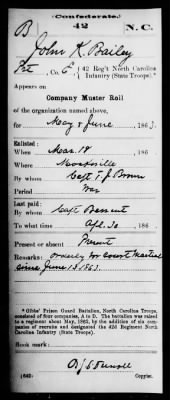 (Confederate.)
B 42 N. C.
John K. Bailey
Pvt, Co. E, 42 Reg't North Carolina
Infantry (State Troops).*
Appears on
Company Muster Roll
of the organization named above,
for May & June, 1863.
Enlisted:
When Mar. 18, 186
Where Mocksville
By whom Capt. T. J. Brown
Period War
Last paid:
By whom Capt Bessent
To what time Apl. 30, 186
Present or absent Present
Remarks: Orderly for Court Martial
since June 13 1863.
*Gibbs' Prison Guard Battalion, North Carolina Troops,
consisted of four companies, A to D. The battalion was raised
to a regiment about May, 1862, by the addition of six com-
panies of recruits and designated the 42d Regiment North
Carolina Infantry (State Troops).
Book mark:
(642) Copyist.